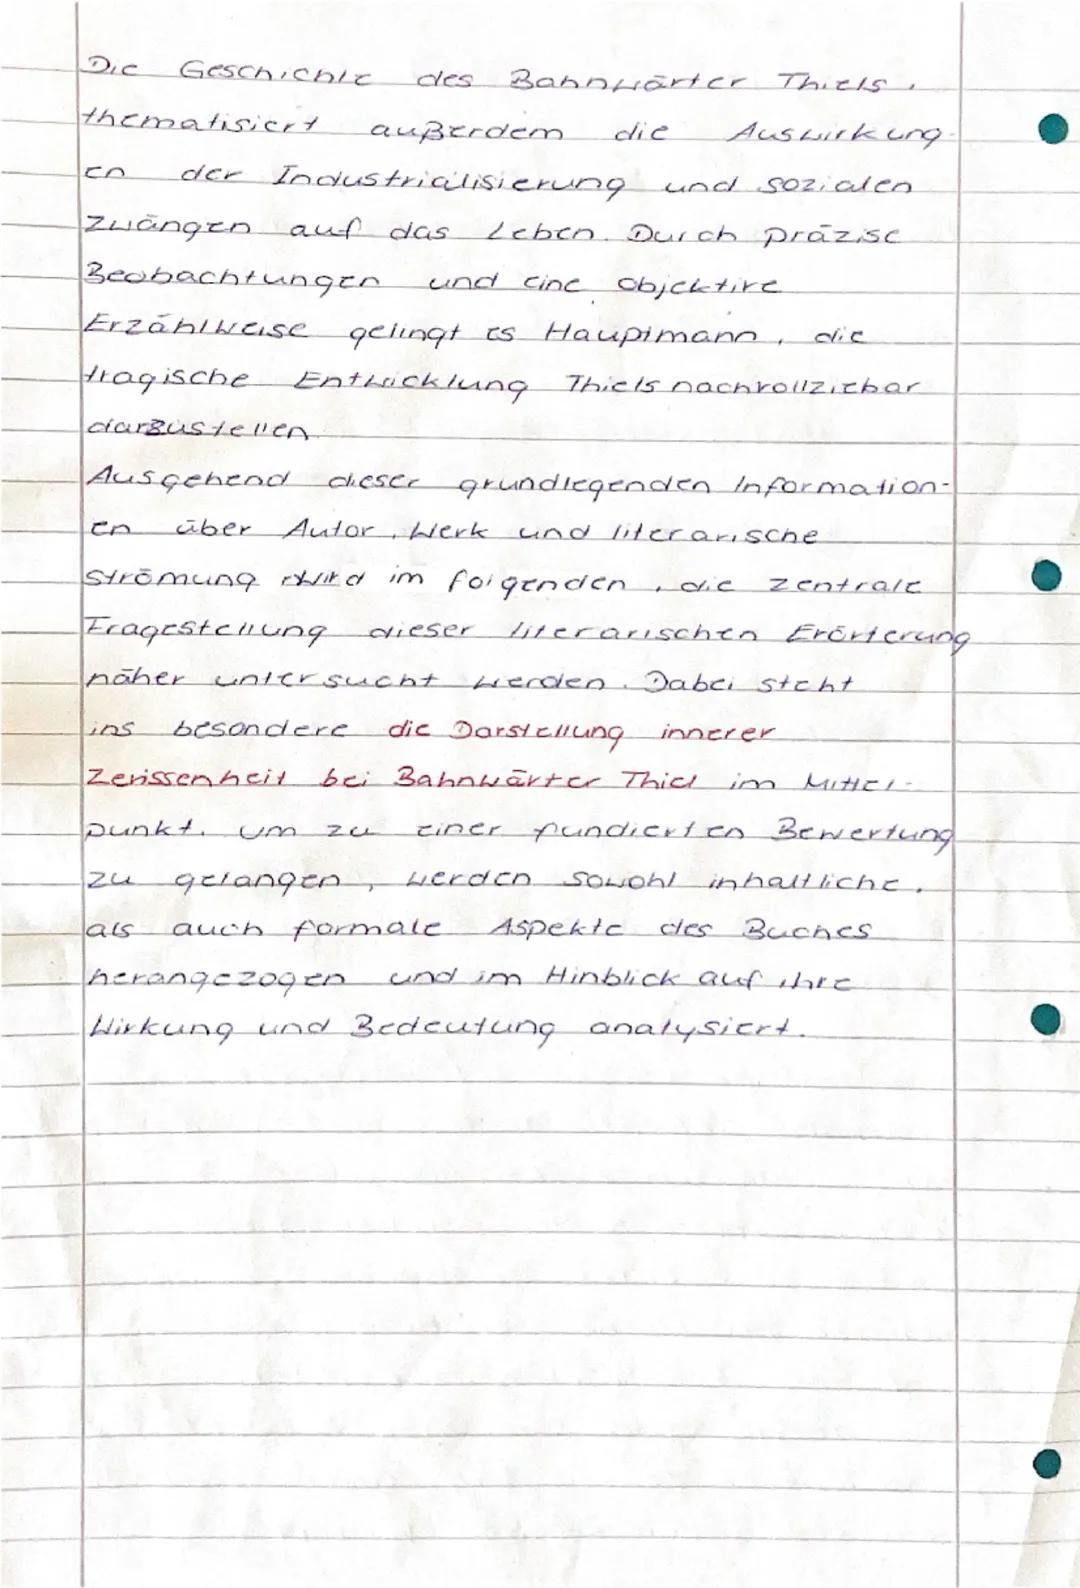 Die Geschichte des Bahnwärter Thiels,
thematisiert außerdem die Auswirkung-
en der Industrialisierung und sozialen
Zwängen auf das Leben. Durch präzise
Beobachtungen und eine objektive
Erzählweise gelingt es Hauptmann, die
tragische Entwicklung Thiels nachvollziehbar
darzustellen.
Ausgehend dieser grundlegenden Information-
en über Autor, Werk und literarische
Strömung wird im folgenden, die zentrale
Fragestellung dieser literarischen Erörterung
näher untersucht werden. Dabei steht
ins besondere die Darstellung innerer
Zerissenheit bei Bahnwärter Thiel im Mittel-
punkt. Um zu einer fundierten Bewertung
zu gelangen, werden sowohl inhaltliche,
als auch formale Aspekte des Buches
herangezogen und im Hinblick auf ihre
Wirkung und Bedeutung analysiert.